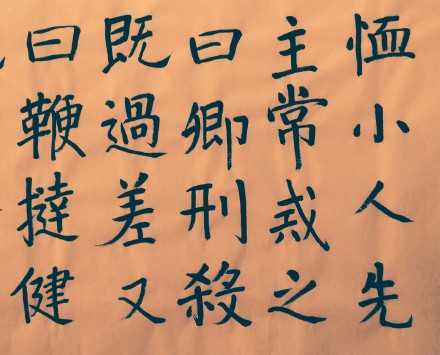 恤小人先
主常戒之
曰卿刑殺
既過差又
曰鞭撻健